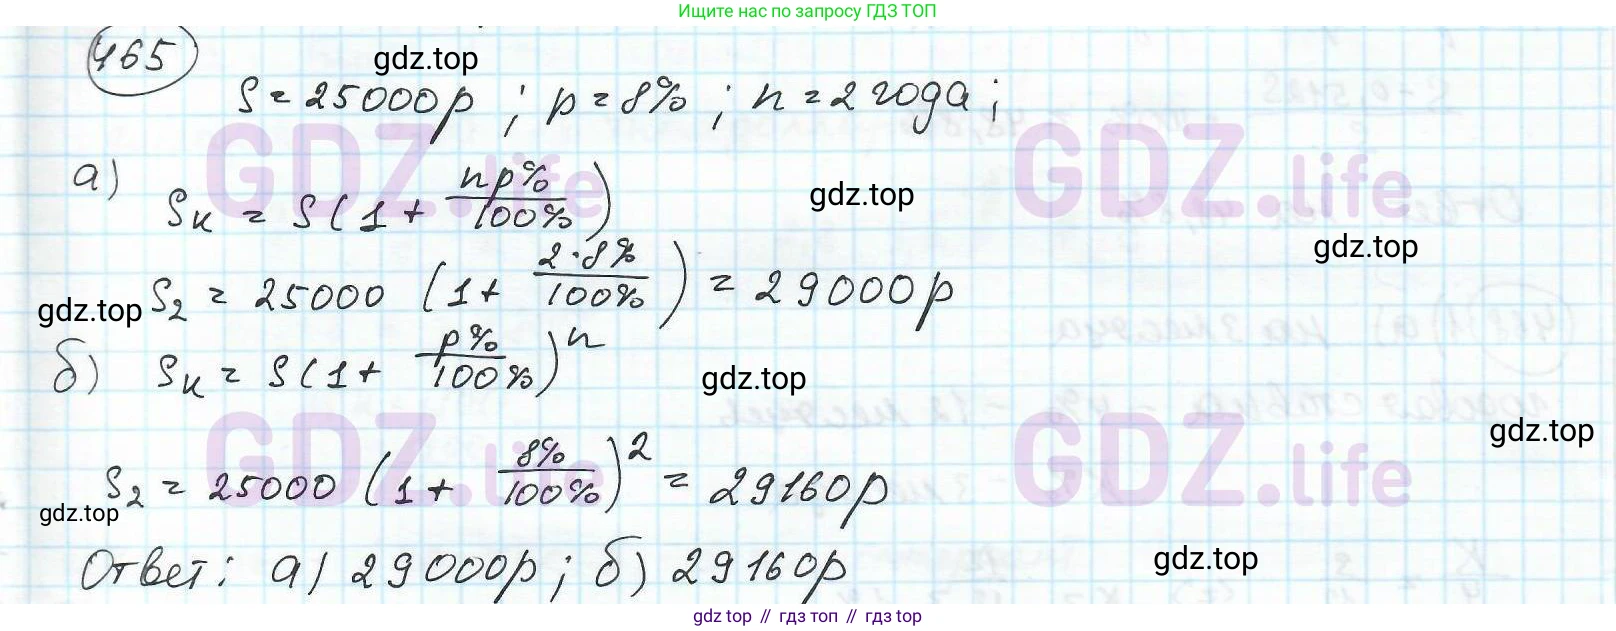 Ищите нас по запросу ГДЗ ТОП
465
gdz.top
S = 25000р ; p = 8% ; n = 2 года ;
GDZ.life GDZ.life
а)
Sк = S(1 + np%/100%)
gdz.top
gdz.top
S2 = 25000 (1 + 2·8%/100%) = 29000р
gdz.top
б) Sк = S(1 + p%/100%)^n
gdz.top
gdz.top
GDZ.life GDZ.life
S2 = 25000 (1 + 8%/100%)^2 = 29160р
gdz.top
Ответ: а) 29000р; б) 29160р
gdz.top
gdz top // гдз топ // gdz top